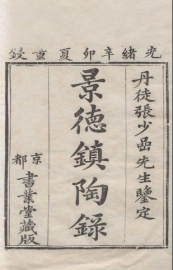 光緒辛卯夏重鋟
丹徒張少嵒先生鑒定
景德鎮陶錄
京都書業堂藏版